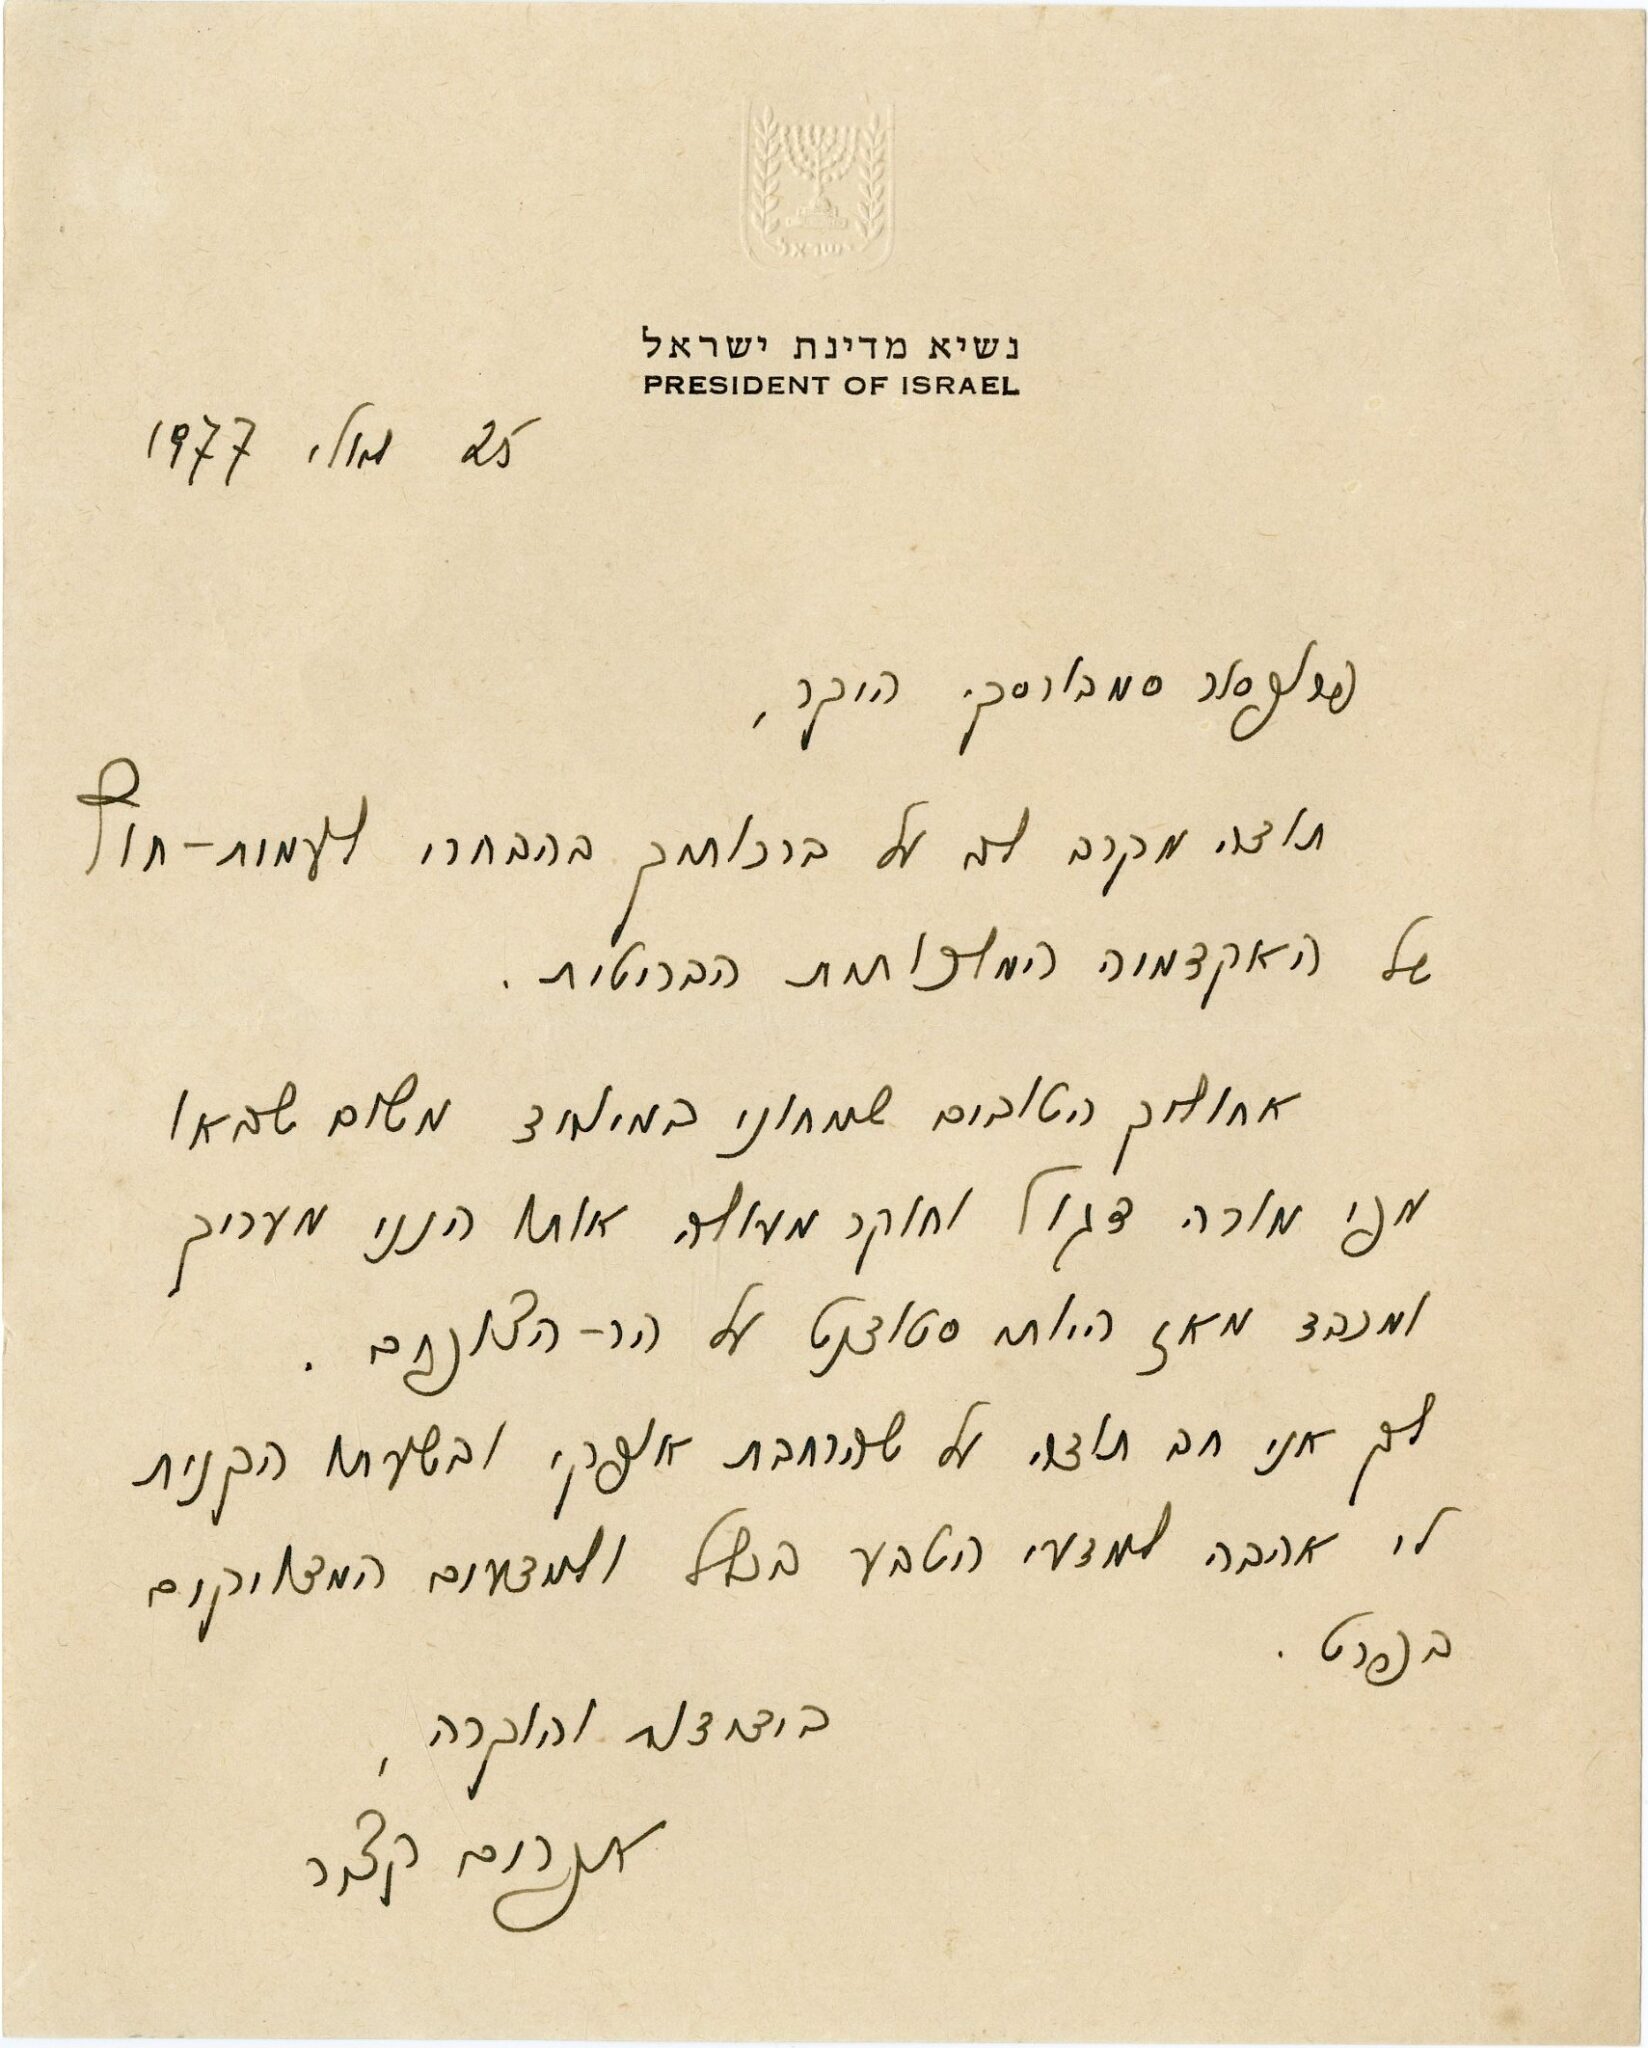 ישראל
נשיא מדינת ישראל
PRESIDENT OF ISRAEL
25 יולי 1977
פרופסור סמבורסקי היקר,
תודה מקרב לב על ברכותיך בהבחרי לעמית-חוץ
של האקדמיה המלכותית הבריטית.
אחוליך הטובים שמחוני במיוחד משום שבאו
מפי מורה דגול וחוקר מעולה אותו הנני מעריך
ומכבד מאז היותי סטודנט על הר-הצופים.
לך אני חב תודה על שהרחבת אופקי ובשעתו הקנית
לי אהבה למדעי הטבע בכלל ולמדעים המדויקים
בפרט.
בידידות והוקרה,
אפרים קציר